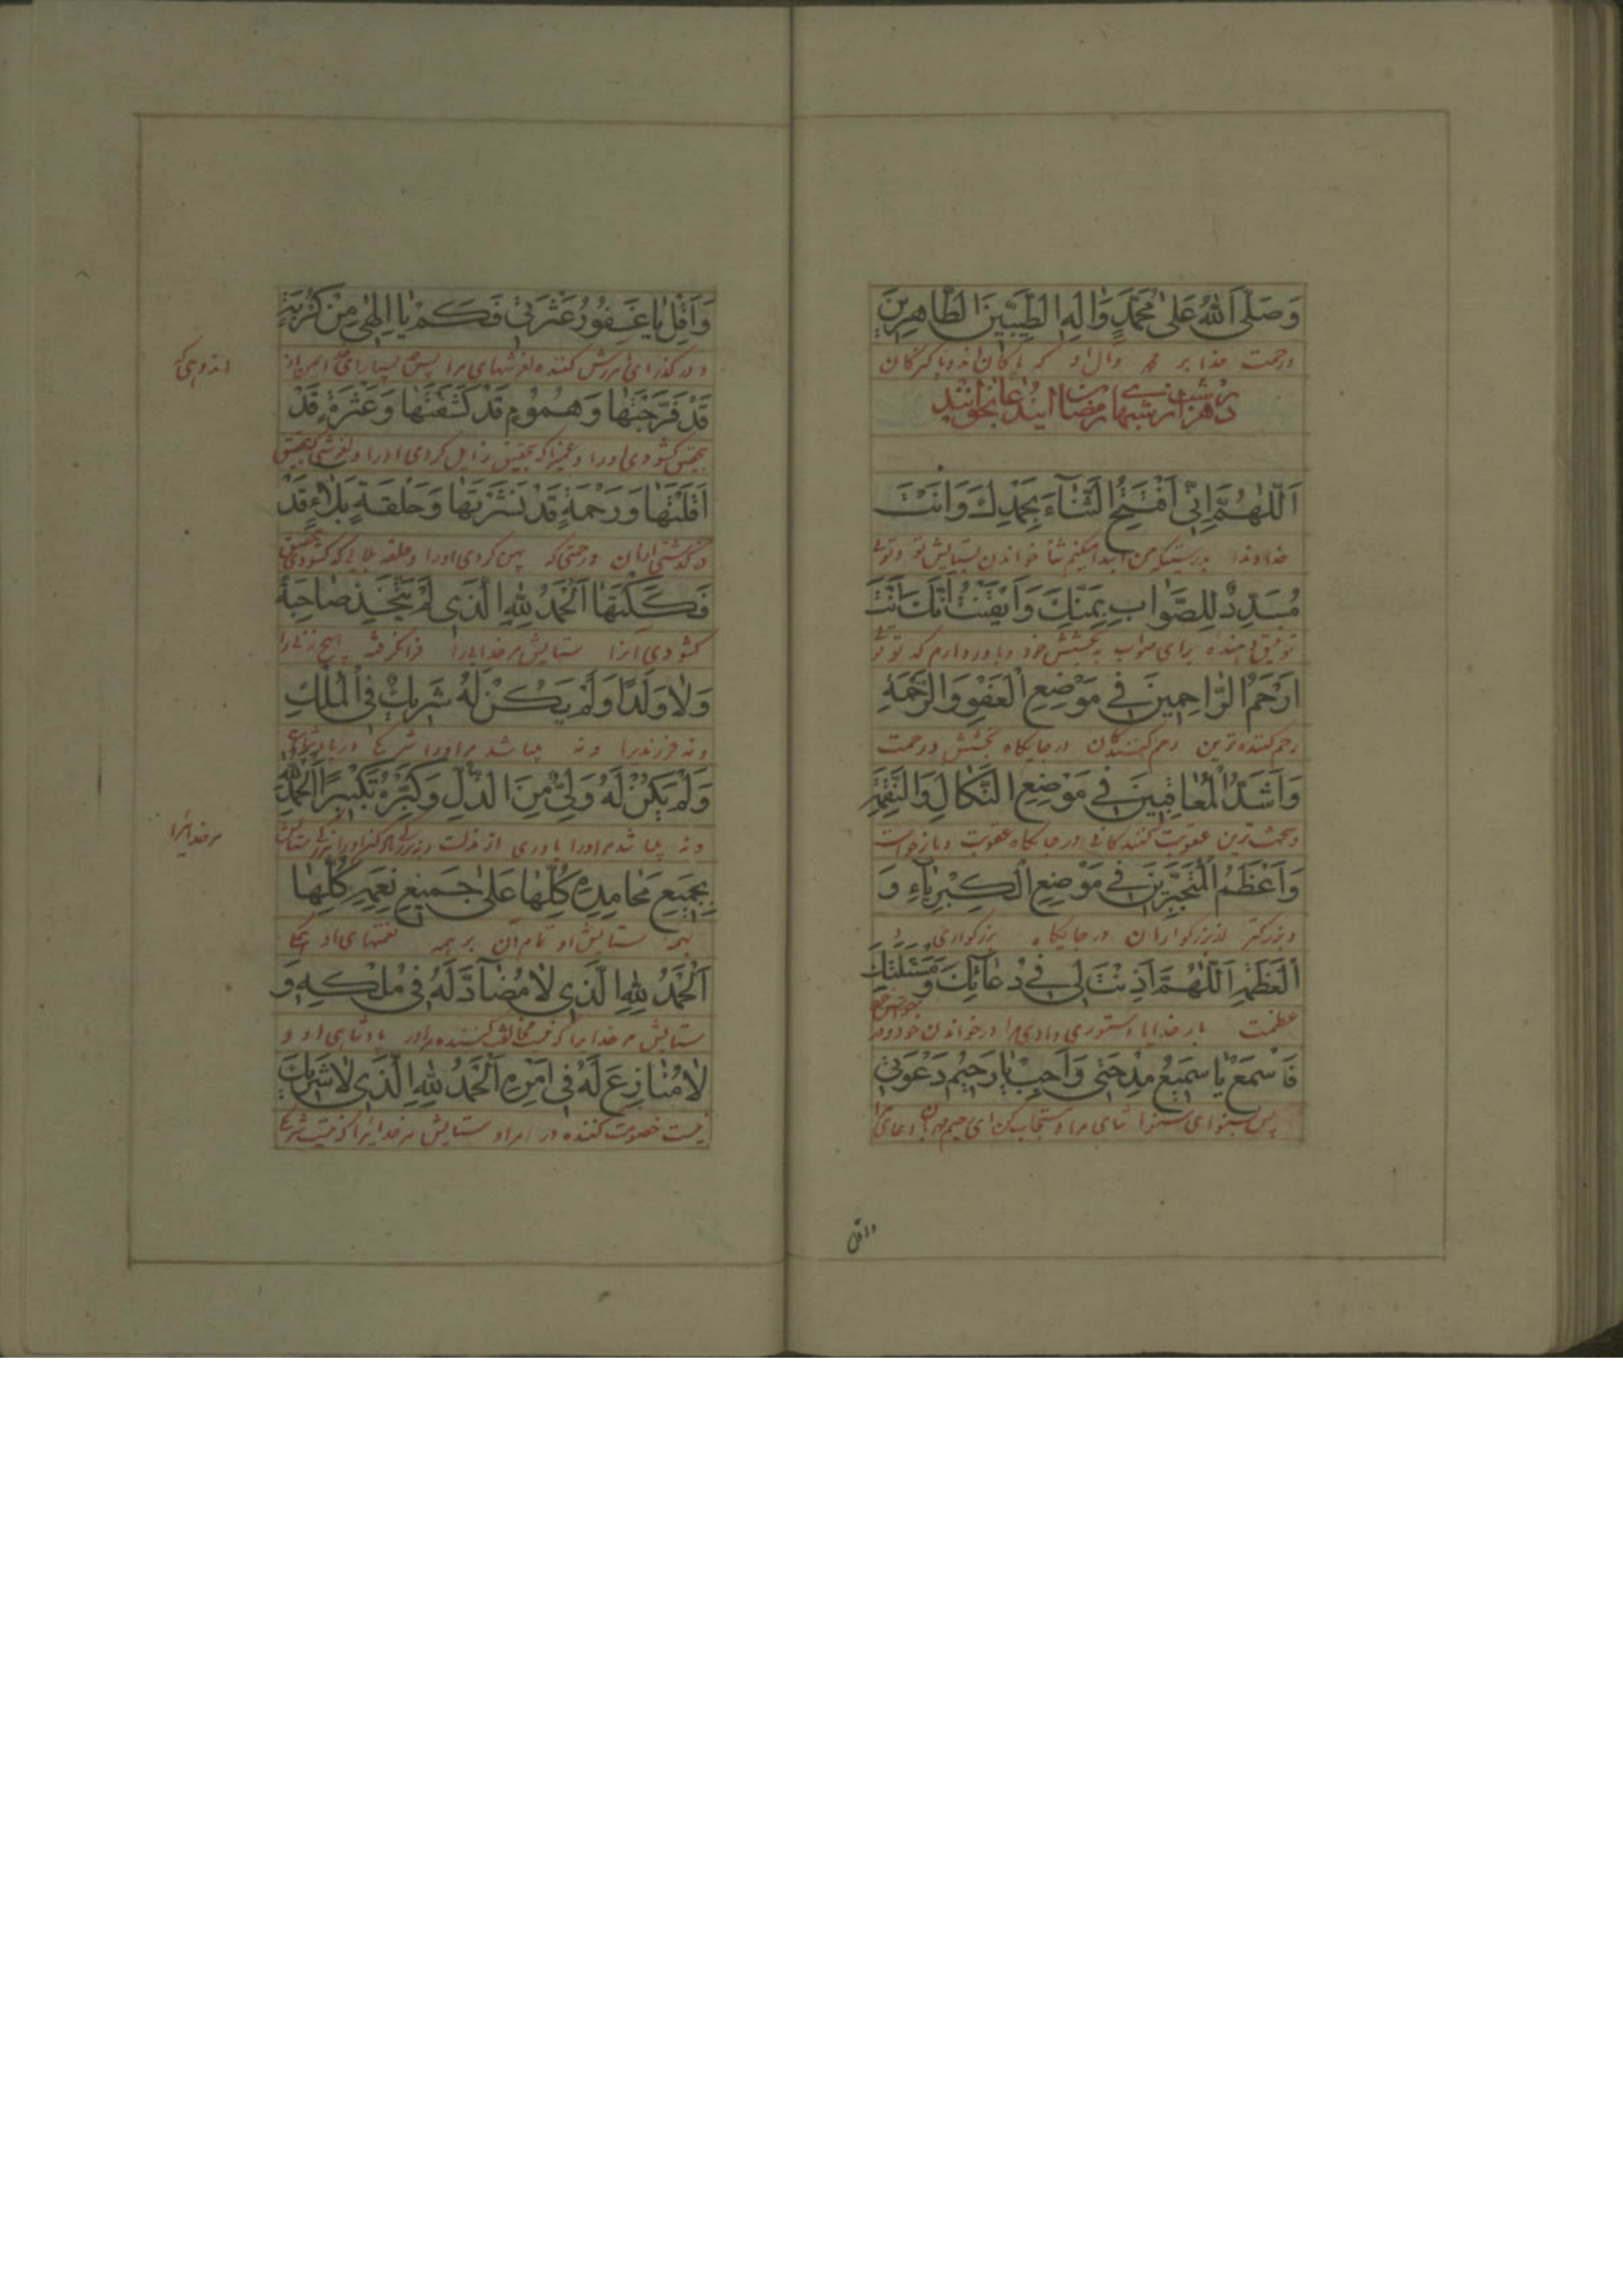 وَصَلَّى اللهُ عَلىٰ مُحَمَّدٍ وَاٰلِهِ الطَّيِّبِينَ الطَّاهِرِينَ
ورحمت خدا بر محمد وال او که پاکان اند و پاکیزکان
در هر شب از شبهای رمضان این دعا بخوانند
اَللّٰهُمَّ اِنّى اَفْتَتِحُ الثَّنَاءَ بِحَمْدِكَ وَاَنْتَ
خداوندا بدرستیکه من ابتدا میکنم ثنا خواندن بستایش تو و توئی
مُسَدِّدٌ لِلصَّوابِ بِمَنِّكَ وَاَيْقَنْتُ اَنَّكَ اَنْتَ
توفیق دهنده برای صواب به بخشش خود و باور دارم که تو توئی
اَرْحَمُ الرَّاحِمِينَ فى مَوْضِعِ الْعَفْوِ وَالرَّحْمَةِ
رحم کننده ترین رحم کنندکان در جایکاه بخشش و رحمت
وَاَشَدُّ الْمُعاقِبينَ فى مَوْضِعِ النَّكالِ وَالنَّقِمَةِ
و سخت ترین عقوبت کنندکانی در جایکاه عقوبت و بازخواست
وَاَعْظَمُ الْمُتَجَبِّرينَ فى مَوْضِعِ الْكِبْرِياءِ وَ
و بزرکتر از بزرکواران در جایکاه بزرکواری و
الْعَظَمَةِ اَللّٰهُمَّ اَذِنْتَ لى فى دُعائِكَ وَمَسْئَلَتِكَ
عظمت بار خدایا دستوری دادی مرا در خواندن خود و در
فَاسْمَعْ يا سَميعُ مِدْحَتى وَاَجِبْ يا رَحيمُ دَعْوَتى
پس بشنو ای شنوا ثنای مرا و مستجاب کن ای رحیم مهربان دعای مرا
واقل
وَاَقِلْ يا غَفُورُ عَثْرَتى فَكَمْ يا اِلٰهى مِنْ كُرْبَةٍ
و در کذر ای امرزش کننده لغزشهای مرا پس بسیار ای خدای من از
اندوهی که
قَدْ فَرَّجْتَها وَهُمُومٍ قَدْ كَشَفْتَها وَعَثْرَةٍ قَدْ
بتحقیق کشودی اورا و غمها که بتحقیق زایل کردی اورا و لغزشی که بتحقیق
اَقَلْتَها وَرَحْمَةٍ قَدْ نَشَرْتَها وَحَلْقَةِ بَلاءٍ قَدْ
در کذشتی ازان و رحمتی که پهن کردی اورا و حلقه بلایی که کشودی بتحقیق
فَكَكْتَها اَلْحَمْدُ لِلّٰهِ الَّذى لَمْ يَتَّخِذْ صاحِبَةً
کشودی انرا ستایش مر خدایرا فرا نکرفته هیچ زنی را
وَلا وَلَدًا وَلَمْ يَكُنْ لَهُ شَريكٌ فى الْمُلْكِ
و نه فرزندیرا و نه میباشد مر اورا شریک در پادشاهی
وَلَمْ يَكُنْ لَهُ وَلِىٌّ مِنَ الذُّلِّ وَكَبِّرْهُ تَكْبيرًا اَلْحَمْدُ لِلّٰهِ
و نه میباشد مر اورا یاوری از مذلت و ستایش
مر خدایرا
بِجَميعِ مَحامِدِهِ كُلِّها عَلىٰ جَميعِ نِعَمِهِ كُلِّها
بهمه ستایش او تمام ان بر همه نعمتهای او
اَلْحَمْدُ لِلّٰهِ الَّذى لا مُضَآدَّ لَهُ فى مُلْكِهِ وَ
ستایش مر خدایرا که نیست مخالفت کننده مر اورا در پادشاهی او و
لا مُنازِعَ لَهُ فى اَمْرِهِ اَلْحَمْدُ لِلّٰهِ الَّذى لا شَريكَ
نیست خصومت کننده در امر او ستایش مر خدایرا که نیست شریک